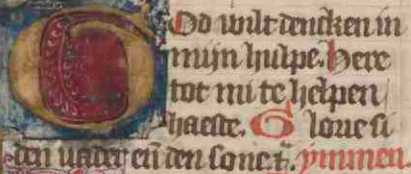 God wilt dencken in
mijn hulpe. Here
tot mi te helpen
haeste. Glorie si
den vader en̄ den sone. t̃. ymnen.